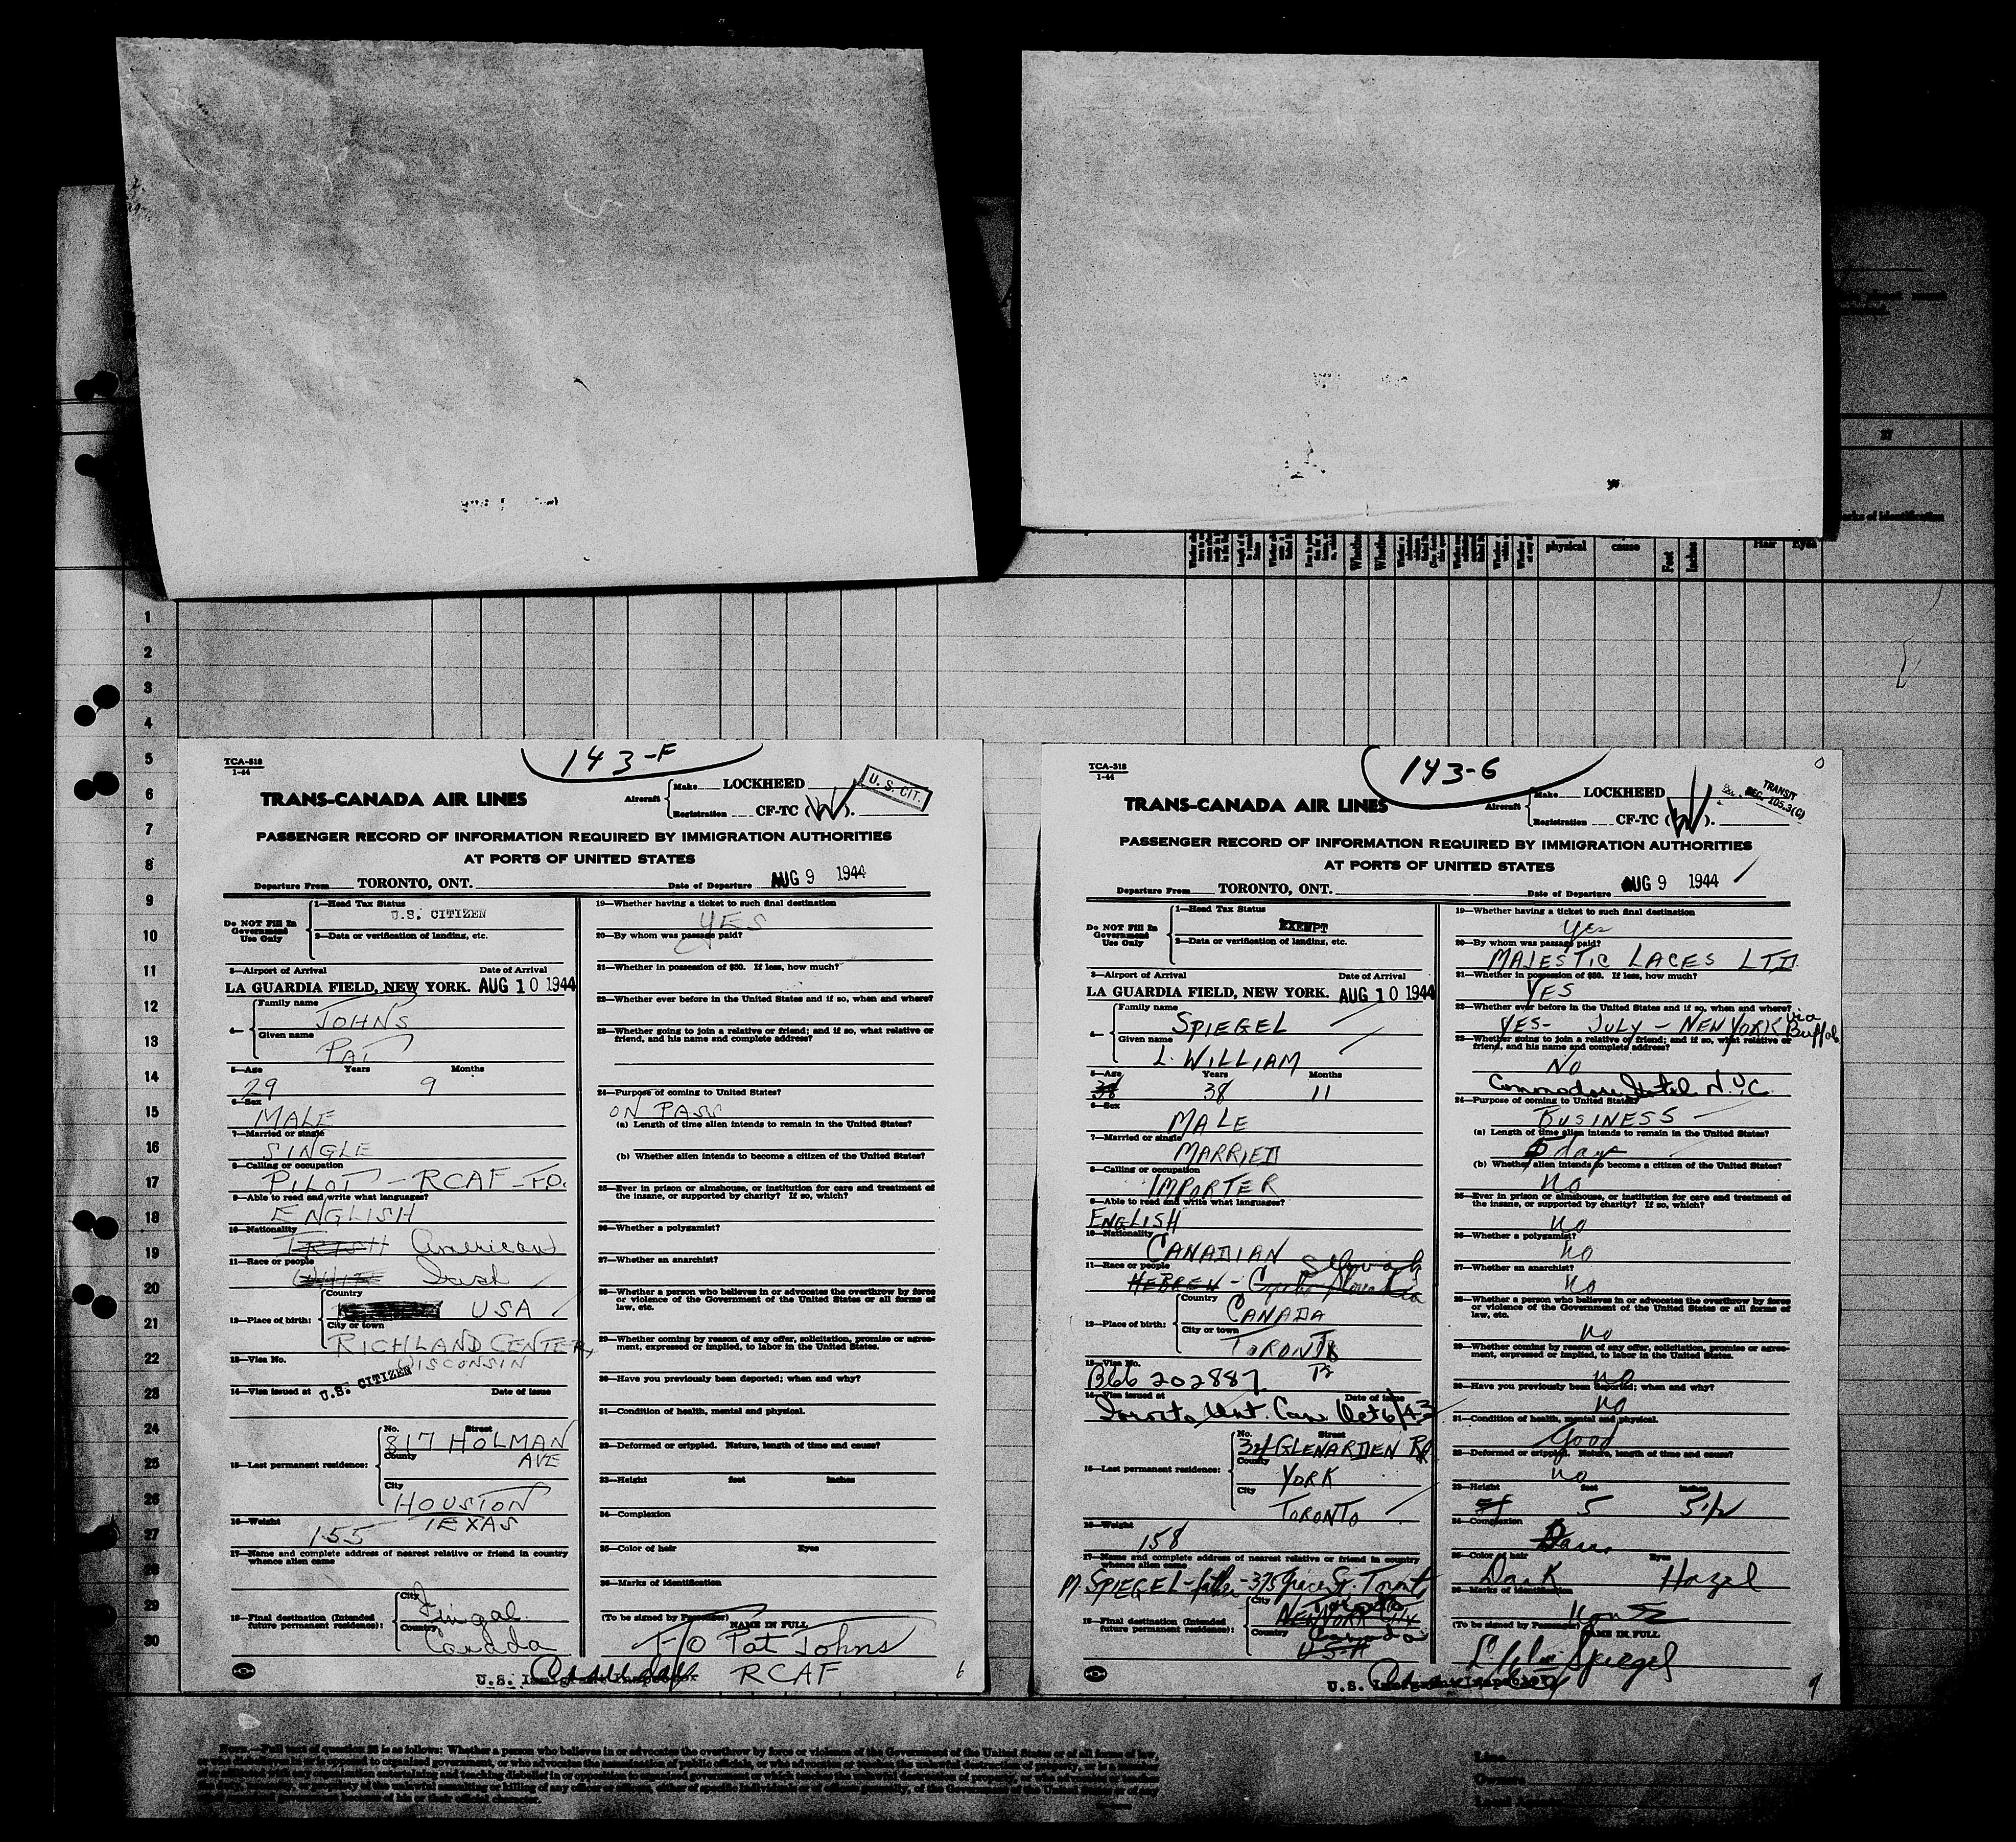 27
marks of identification
physical
cause
Feet
Inches
Hair
Eyes
1
2
3
4
5
6
7
8
9
10
11
12
13
14
15
16
17
18
19
20
21
22
23
24
25
26
27
28
29
30
143-F
TCA-518
1-44
TRANS-CANADA AIR LINES
Aircraft
Make LOCKHEED
Registration CF-TC (W).
U. S. CIT.
PASSENGER RECORD OF INFORMATION REQUIRED BY IMMIGRATION AUTHORITIES
AT PORTS OF UNITED STATES
Departure From TORONTO, ONT. Date of Departure AUG 9 1944
Do NOT Fill In Government Use Only
1—Head Tax Status
U.S. CITIZEN
2—Data or verification of landing, etc.
3—Airport of Arrival Date of Arrival
LA GUARDIA FIELD, NEW YORK. AUG 10 1944
4—
Family name
JOHNS
Given name
PAT
5—Age Years Months
29 9
6—Sex
MALE
7—Married or single
SINGLE
8—Calling or occupation
PILOT - RCAF - F.O.
9—Able to read and write what languages?
ENGLISH
10—Nationality
IRISH American
11—Race or people
WHITE Irish
12—Place of birth:
Country
USA
City or town
RICHLAND CENTER,
WISCONSIN
13—Visa No.
U.S. CITIZEN
14—Visa issued at Date of issue
15—Last permanent residence:
No. Street
817 HOLMAN
County
AVE
City
HOUSTON
TEXAS
16—Weight
155
17—Name and complete address of nearest relative or friend in country
whence alien came
18—Final destination (Intended
future permanent residence):
City
Fingal
Country
Canada
U.S. Immigrant Inspector
19—Whether having a ticket to such final destination
YES
20—By whom was passage paid?
21—Whether in possession of $50. If less, how much?
22—Whether ever before in the United States and if so, when and where?
23—Whether going to join a relative or friend; and if so, what relative or
friend, and his name and complete address?
24—Purpose of coming to United States?
ON PASS
(a) Length of time alien intends to remain in the United States?
(b) Whether alien intends to become a citizen of the United States?
25—Ever in prison or almshouse, or institution for care and treatment of
the insane, or supported by charity? If so, which?
26—Whether a polygamist?
27—Whether an anarchist?
28—Whether a person who believes in or advocates the overthrow by force
or violence of the Government of the United States or all forms of
law, etc.
29—Whether coming by reason of any offer, solicitation, promise or agree-
ment, expressed or implied, to labor in the United States.
30—Have you previously been deported; when and why?
31—Condition of health, mental and physical.
32—Deformed or crippled. Nature, length of time and cause?
33—Height feet inches
34—Complexion
35—Color of hair Eyes
36—Marks of identification
(To be signed by Passenger)
NAME IN FULL
F/O Pat Johns
RCAF
6
143-G
TCA-518
1-44
TRANS-CANADA AIR LINES
Aircraft
Make LOCKHEED
Registration CF-TC (W).
TRANSIT
SEC. 105.3(C)
PASSENGER RECORD OF INFORMATION REQUIRED BY IMMIGRATION AUTHORITIES
AT PORTS OF UNITED STATES
Departure From TORONTO, ONT. Date of Departure AUG 9 1944
Do NOT Fill In Government Use Only
1—Head Tax Status
EXEMPT
2—Data or verification of landing, etc.
3—Airport of Arrival Date of Arrival
LA GUARDIA FIELD, NEW YORK. AUG 10 1944
4—
Family name
SPIEGEL
Given name
L. WILLIAM
5—Age Years Months
38 38 11
6—Sex
MALE
7—Married or single
MARRIED
8—Calling or occupation
IMPORTER
9—Able to read and write what languages?
ENGLISH
10—Nationality
CANADIAN
11—Race or people
Slovak
HEBREW - Czecho Slovakia
12—Place of birth:
Country
CANADA
City or town
TORONTO
13—Visa No.
B66 202887
14—Visa issued at Date of issue
Toronto Ont. Can Oct 6/43
15—Last permanent residence:
No. Street
34 GLENARDEN RD
County
YORK
City
TORONTO
16—Weight
158
17—Name and complete address of nearest relative or friend in country
whence alien came
M. SPIEGEL - father - 375 Grace St. Toronto
18—Final destination (Intended
future permanent residence):
City
Toronto
NEW YORK City
Country
Canada
U.S.A
U.S. Immigrant Inspector
19—Whether having a ticket to such final destination
Yes
20—By whom was passage paid?
MAJESTIC LACES LTD.
21—Whether in possession of $50. If less, how much?
YES
22—Whether ever before in the United States and if so, when and where?
YES - JULY - NEW YORK via Buffalo
23—Whether going to join a relative or friend; and if so, what relative or
friend, and his name and complete address?
NO
Commodore Hotel N.Y.C.
24—Purpose of coming to United States?
BUSINESS
(a) Length of time alien intends to remain in the United States?
5 days
(b) Whether alien intends to become a citizen of the United States?
no
25—Ever in prison or almshouse, or institution for care and treatment of
the insane, or supported by charity? If so, which?
no
26—Whether a polygamist?
no
27—Whether an anarchist?
no
28—Whether a person who believes in or advocates the overthrow by force
or violence of the Government of the United States or all forms of
law, etc.
no
29—Whether coming by reason of any offer, solicitation, promise or agree-
ment, expressed or implied, to labor in the United States.
no
30—Have you previously been deported; when and why?
no
31—Condition of health, mental and physical.
Good
32—Deformed or crippled. Nature, length of time and cause?
no
33—Height feet inches
5 5 1/2
34—Complexion
35—Color of hair Eyes
Dark Hazel
36—Marks of identification
None
(To be signed by Passenger)
NAME IN FULL
Spiegel
9
Note.—Full text of question 28 is as follows: Whether a person who believes in or advocates the overthrow by force or violence of the Government of the United States or of all forms of law,
Line
Owners
Local Agents